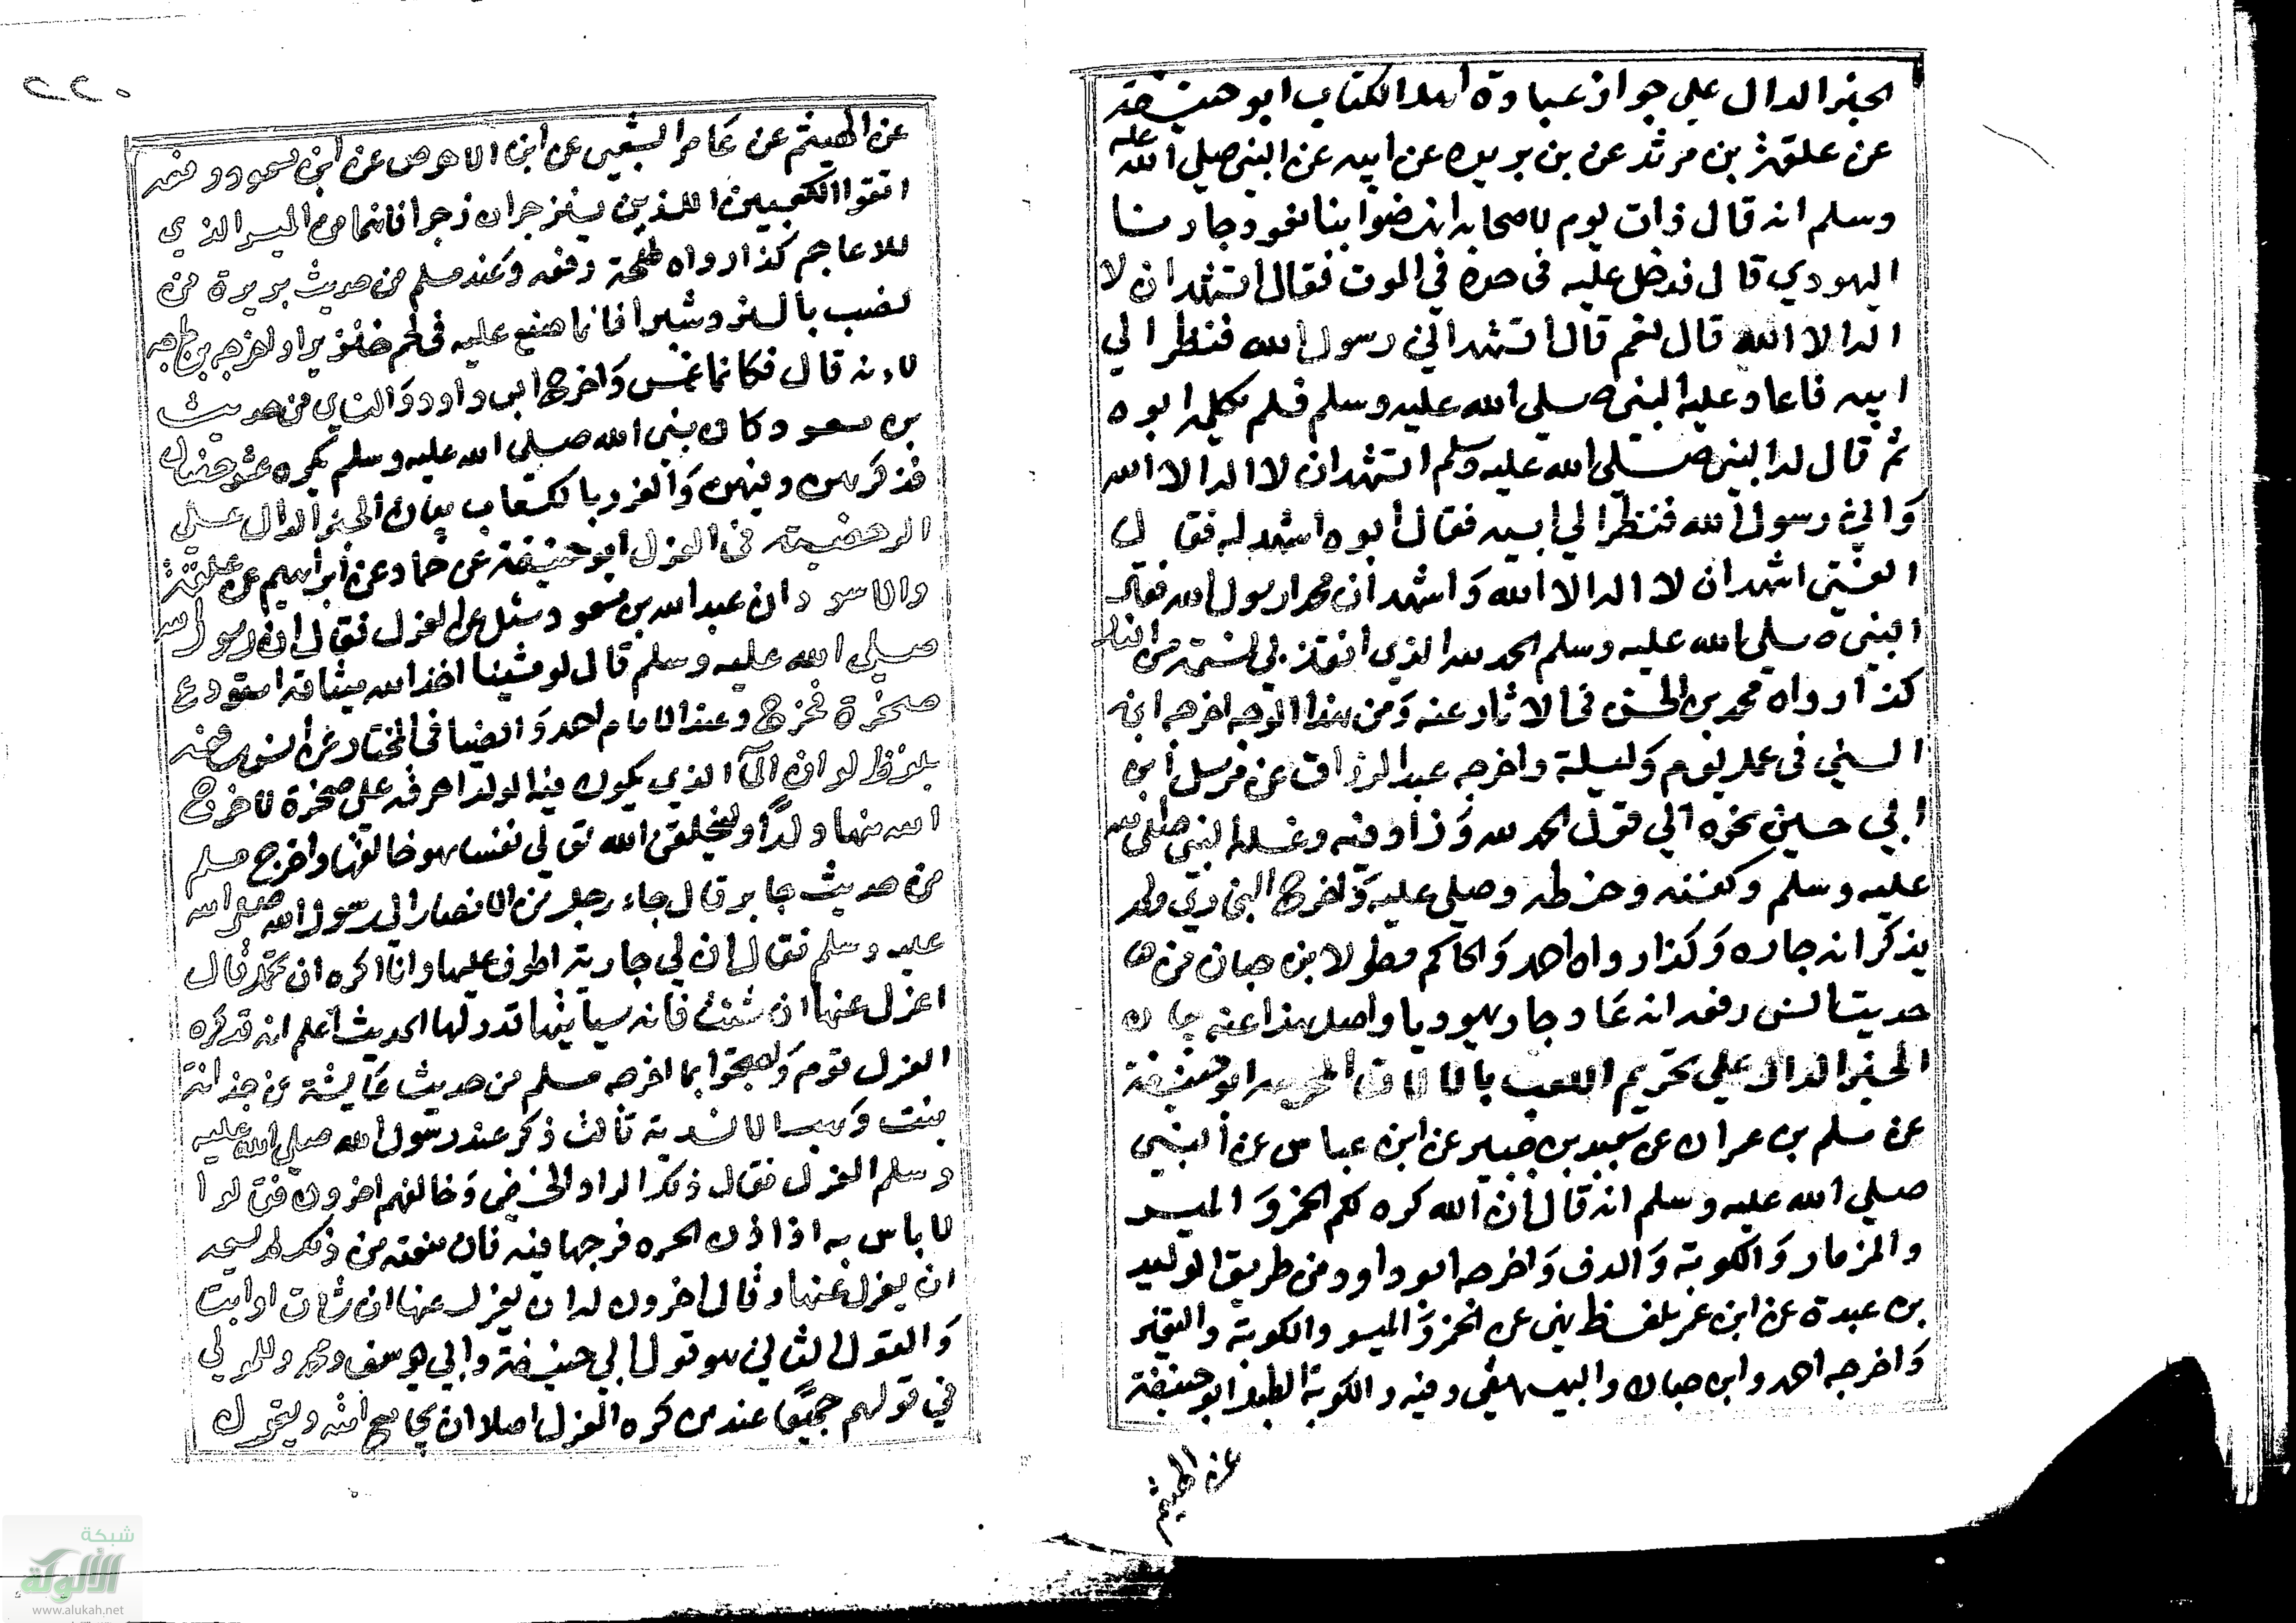 الخبر الدال على جواز عيادة اهل الكتاب ابو حنيفة
عن علقمة بن مرثد عن بن بريده عن ابيه عن النبي صلى الله عليه
وسلم انه قال ذات يوم لاصحابه انهضوا بنا نعود جارنا
اليهودي قال فدخل عليه في الموت فقال اتشهد ان لا
اله الا الله قال نعم قال اتشهد اني رسول الله فنظر الي
ابيه فاعاد عليه النبي صلى الله عليه وسلم فلم يكلمه ابوه
ثم قال له النبي صلى الله عليه وسلم اتشهد ان لا اله الا الله
واني رسول الله فنظر الي ابيه فقال ابوه اشهد له فقال
الفتى اشهد ان لا اله الا الله واشهد ان محمدا رسول الله فقال
النبي صلى الله عليه وسلم الحمد لله الذي انقذ بي نسمة من النار
كذا رواه محمد بن الحسن في الاثار عنه ومن هذا الوجه اخرجه ابن
السني في عمل يوم وليلة واخرجه عبد الرزاق عن مرسل ابن
ابي حسين نحوه الي قوله الحمد لله وزاد فيه وغسله النبي صلى الله
عليه وسلم وكفنه وحنطه وصلى عليه واخرج البخاري ولم
يذكر انه جاره وكذا رواه احمد والحاكم مطولا ابن حبان من
حديث انس رفعه انه عاد جاره يهوديا واصل هذا عنه بيان
الخبر الدال على تحريم اللعب ابو حنيفة
عن مسلم بن عمران عن سعيد بن جبير عن ابن عباس عن النبي
صلى الله عليه وسلم انه قال ان الله كره لكم الخمر والميسر
والمزمار والكوبة والدف واخرجه ابو داود من طريق الوليد
بن عبدة عن ابن عمر بلفظ نهى عن الخمر والميسر والكوبة
واخرجه احمد وابن حبان والبيهقي وفيه والكوبة الطبل ابو حنيفة
عن الهيثم
٢٢٠
عن الهيثم عن عامر الشعبي عن ابن الاحوص عن ابن مسعود رفعه
اتقوا الكعبين اللذين يزجران زجرا فانهما من الميسر الذي
للاعاجم كذا رواه طلحة رفعه وعند مسلم من حديث بريرة من
لعب بالنردشير فكانما صبغ في لحم خنزير او اخرجه بن ماجه
قال فكانما غمس واخرج ابي داود والنسائي من حديث
بن مسعود كان نبي الله صلى الله عليه وسلم يكره عشر خصال
فذكرهن وفيهن والضرب بالكعاب بيان الخبر الدال على
الرخصة في العزل ابو حنيفة عن حماد عن ابراهيم عن علقمة
والاسود ان عبد الله بن مسعود سئل عن العزل فقال ان رسول الله
صلى الله عليه وسلم قال لو شيئا اخذ الله ميثاقه استودع
صخرة فخرج وعند الامام احمد والضيا في المختار عن انس رفعه
بلفظ لو ان الما الذي يكون منه الولد اهرقه على صخرة لاخرج
الله منها ولدا وليخلقن الله تعالى نفسا هو خالقها واخرج مسلم
من حديث جابر قال جاء رجل من الانصار الى رسول الله صلى الله
عليه وسلم فقال ان لي جارية اطوف عليها وانا اكره ان تحمل فقال
اعزل عنها ان شئت فانه سياتيها ما قدر لها الحديث اعلم انه قد كره
العزل قوم واحتجوا بما اخرجه مسلم من حديث عايشة عن جذامة
بنت وهب الاسدية قالت ذكر عند رسول الله صلى الله عليه
وسلم العزل فقال ذلك الواد الخفي وخالفهم اخرون فقالوا
لا باس به اذا اذن الحره فرجها فيه فان منعته من ذلك لم يسعه
ان يعزل عنها وقال اخرون له ان يعزل عنها ان شات او ابت
والقول الثاني هو قول ابي حنيفة وابي يوسف ومحمد وللمولي
في قولهم جميعا عند من كره العزل اصلا ان يجامع امته ويقول
شبكة
الألوكة
www.alukah.net